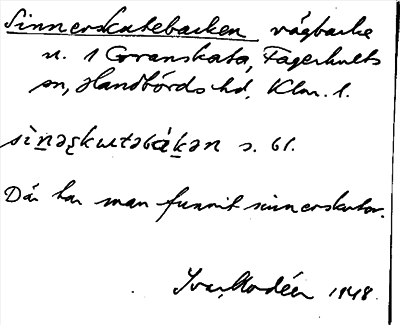 Sinnerskatebacken vägbacke
u. 1 Granskata, Fagerhults
sn, Handbörds hd, Klm. l.
sìn̲əʂkɯtəbák̲ən s. 61.
Där har man funnit sinnerskator.
Ivar Modéer 1948.